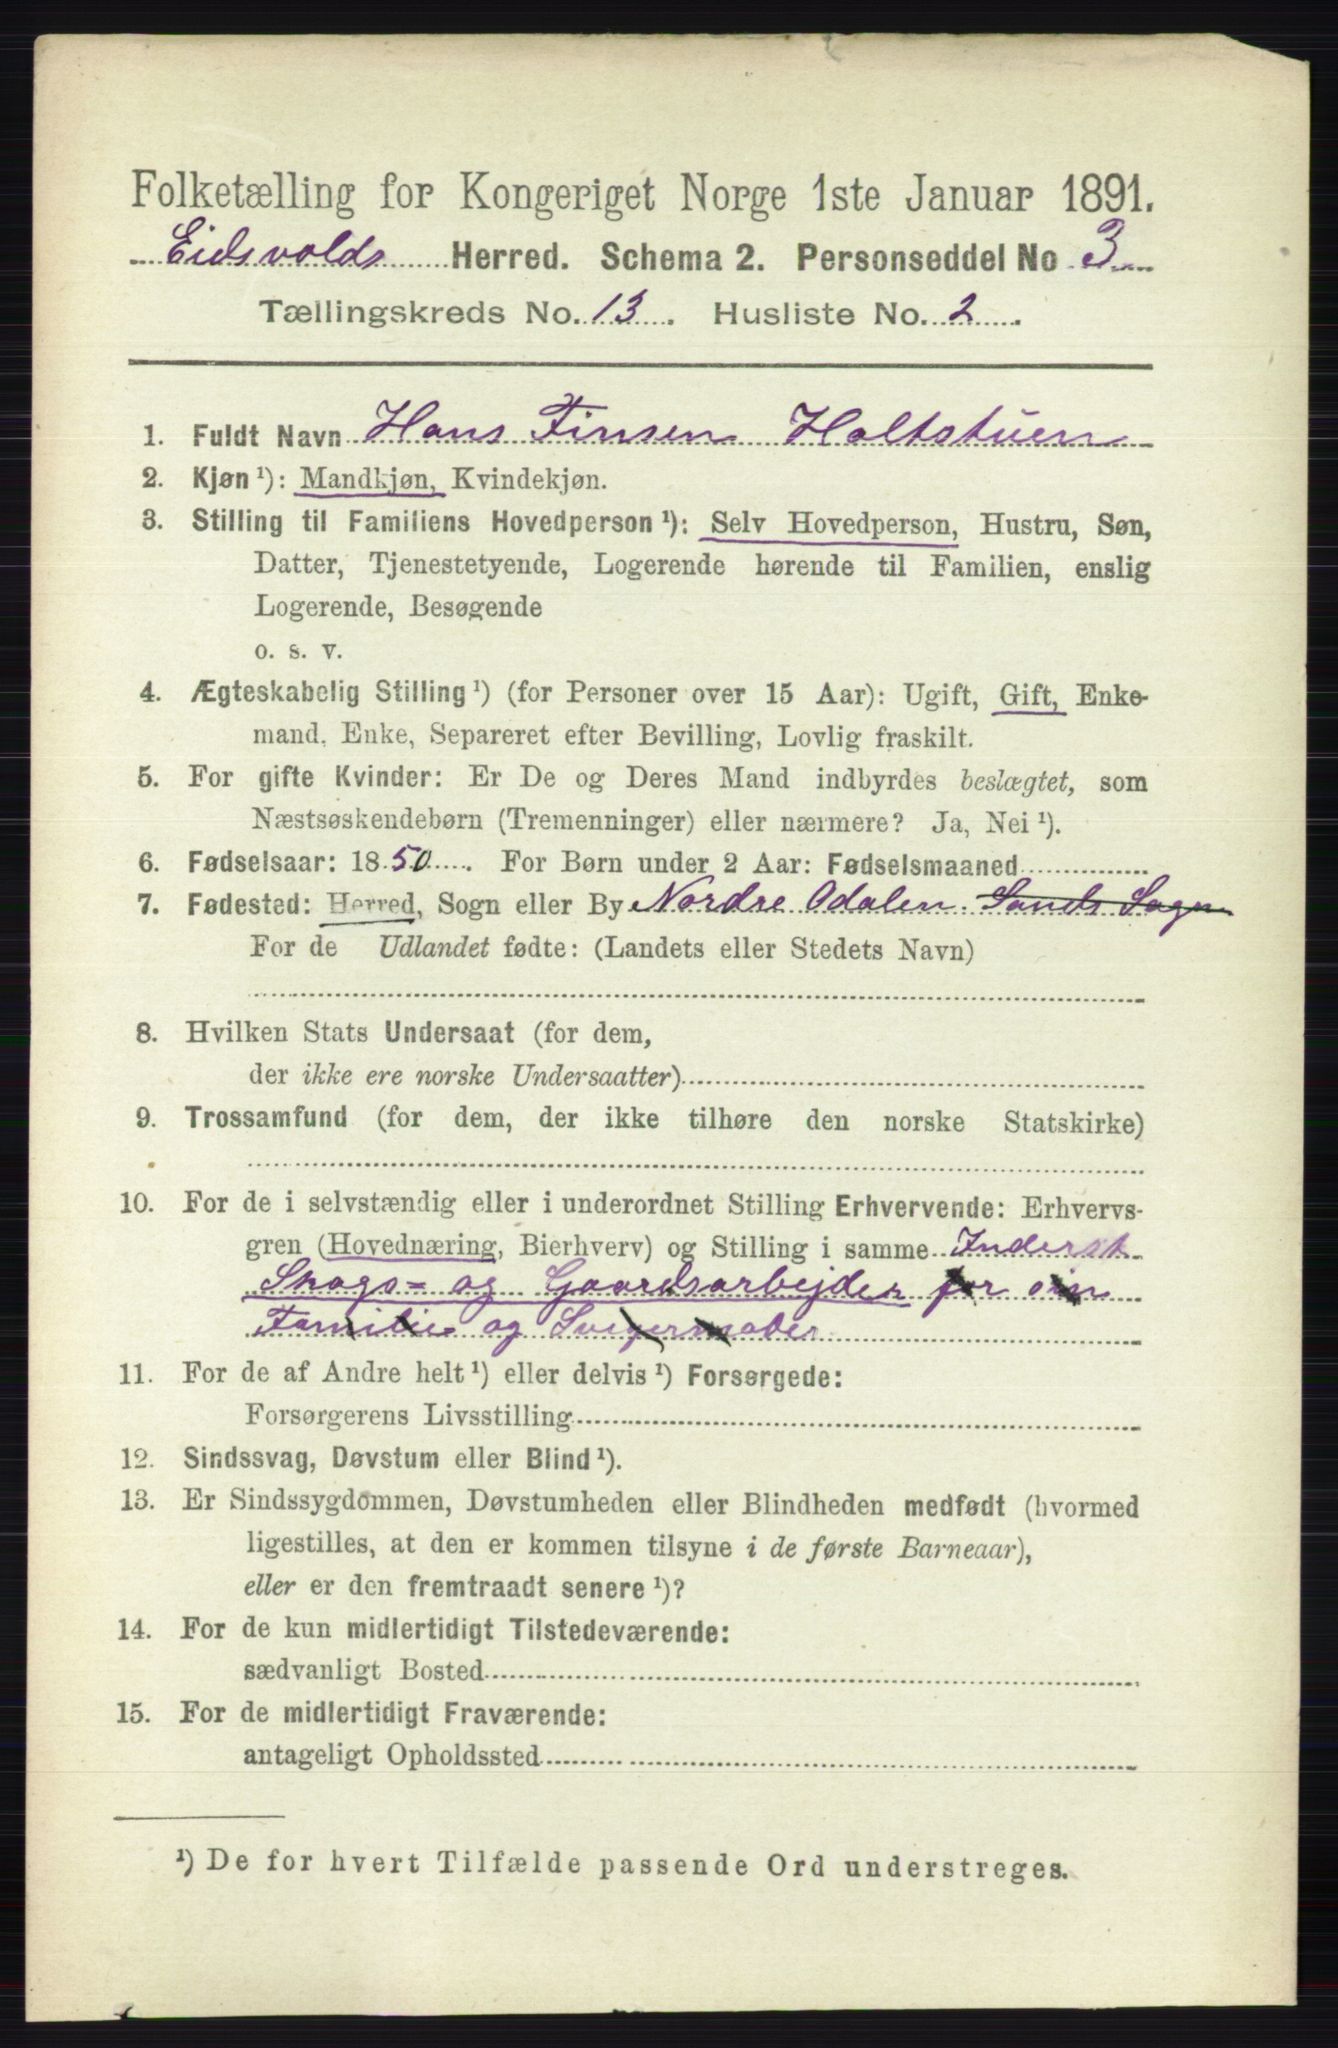 Folketælling for Kongeriget Norge 1ste Januar 1891.
Eidsvolds Herred. Schema 2. Personseddel No 3
Tællingskreds No. 13. Husliste No. 2.
1. Fuldt Navn Hans Finsen Holtstuen
2. Kjøn ¹): Mandkjøn, Kvindekjøn.
3. Stilling til Familiens Hovedperson ¹): Selv Hovedperson, Hustru, Søn,
Datter, Tjenestetyende, Logerende hørende til Familien, enslig
Logerende, Besøgende
o. s. v.
4. Ægteskabelig Stilling ¹) (for Personer over 15 Aar): Ugift, Gift, Enke-
mand, Enke, Separeret efter Bevilling, Lovlig fraskilt.
5. For gifte Kvinder: Er De og Deres Mand indbyrdes beslægtet, som
Næstsøskendebørn (Tremenninger) eller nærmere? Ja, Nei ¹).
6. Fødselsaar: 1850. For Børn under 2 Aar: Fødselsmaaned
7. Fødested: Herred, Sogn eller By Nordre Odalen. Sands Sogn
For de Udlandet fødte: (Landets eller Stedets Navn)
8. Hvilken Stats Undersaat (for dem,
der ikke ere norske Undersaatter)
9. Trossamfund (for dem, der ikke tilhøre den norske Statskirke)
10. For de i selvstændig eller i underordnet Stilling Erhvervende: Erhvervs-
gren (Hovednæring, Bierhverv) og Stilling i samme Inderst
Skogs- og Gaardsarbejder for sin
Familie og Svigermoder
11. For de af Andre helt ¹) eller delvis ¹) Forsørgede:
Forsørgerens Livsstilling
12. Sindssvag, Døvstum eller Blind ¹).
13. Er Sindssygdommen, Døvstumheden eller Blindheden medfødt (hvormed
ligestilles, at den er kommen tilsyne i de første Barneaar),
eller er den fremtraadt senere ¹)?
14. For de kun midlertidigt Tilstedeværende:
sædvanligt Bosted
15. For de midlertidigt Fraværende:
antageligt Opholdssted
¹) De for hvert Tilfælde passende Ord understreges.